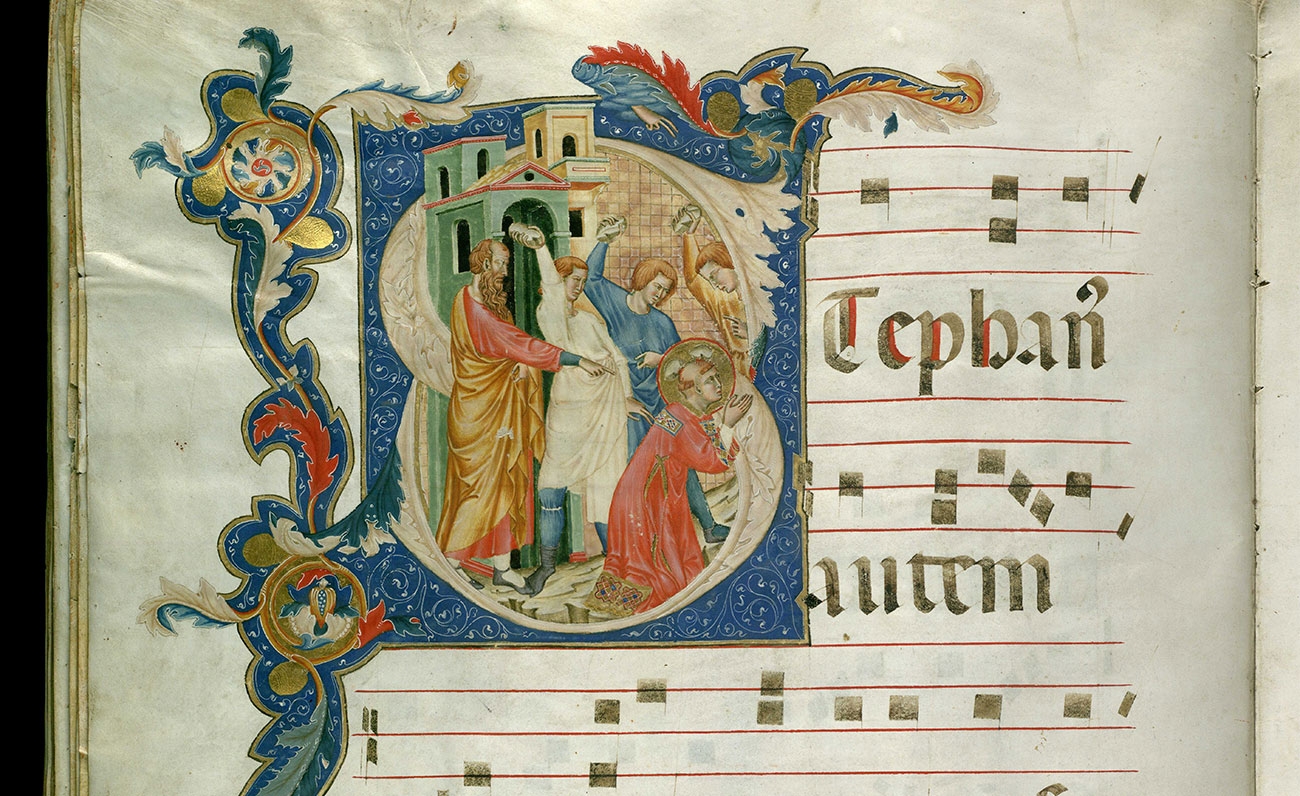 STephañ
autem